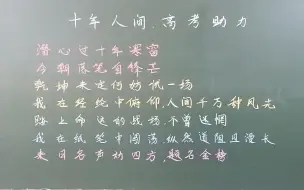 十年人间,高考助力
潜心过十年寒窗
今朝落笔自锋芒
乾坤未定何妨试一场
我在经纶中俯仰,人间千万种风光
踏上命运的战场,不曾迷惘
我在纸笔中闯荡,纵然道阻且漫长
来日名声动四方,题名金榜